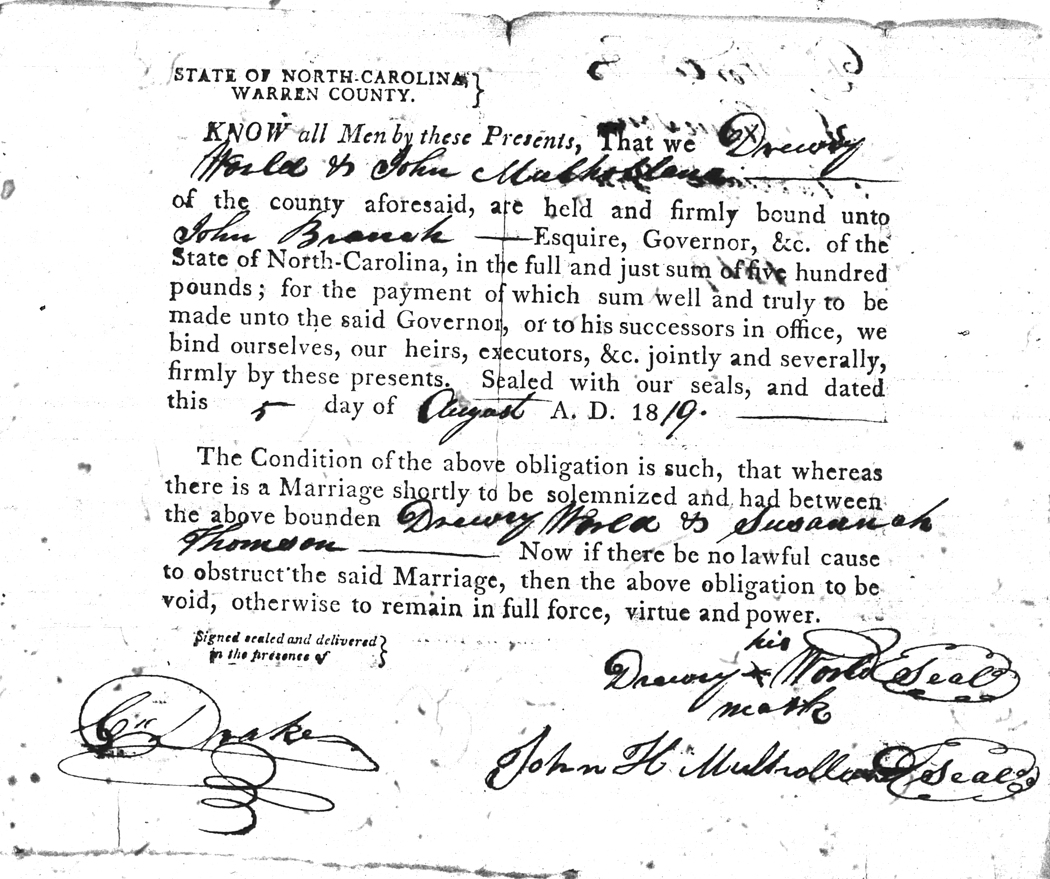 STATE OF NORTH-CAROLINA,
WARREN COUNTY.
KNOW all Men by these Presents, That we Drewry
World & John Mulholland
of the county aforesaid, are held and firmly bound unto
John Branch Esquire, Governor, &c. of the
State of North-Carolina, in the full and just sum of five hundred
pounds; for the payment of which sum well and truly to be
made unto the said Governor, or to his successors in office, we
bind ourselves, our heirs, executors, &c. jointly and severally,
firmly by these presents. Sealed with our seals, and dated
this 5 day of August A. D. 1819.
The Condition of the above obligation is such, that whereas
there is a Marriage shortly to be solemnized and had between
the above bounden Drewry World & Susannah
Thomson Now if there be no lawful cause
to obstruct the said Marriage, then the above obligation to be
void, otherwise to remain in full force, virtue and power.
Signed sealed and delivered
in the presence of
his
Drewry x World Seal
mark
Drake
John H Mulholland Seal